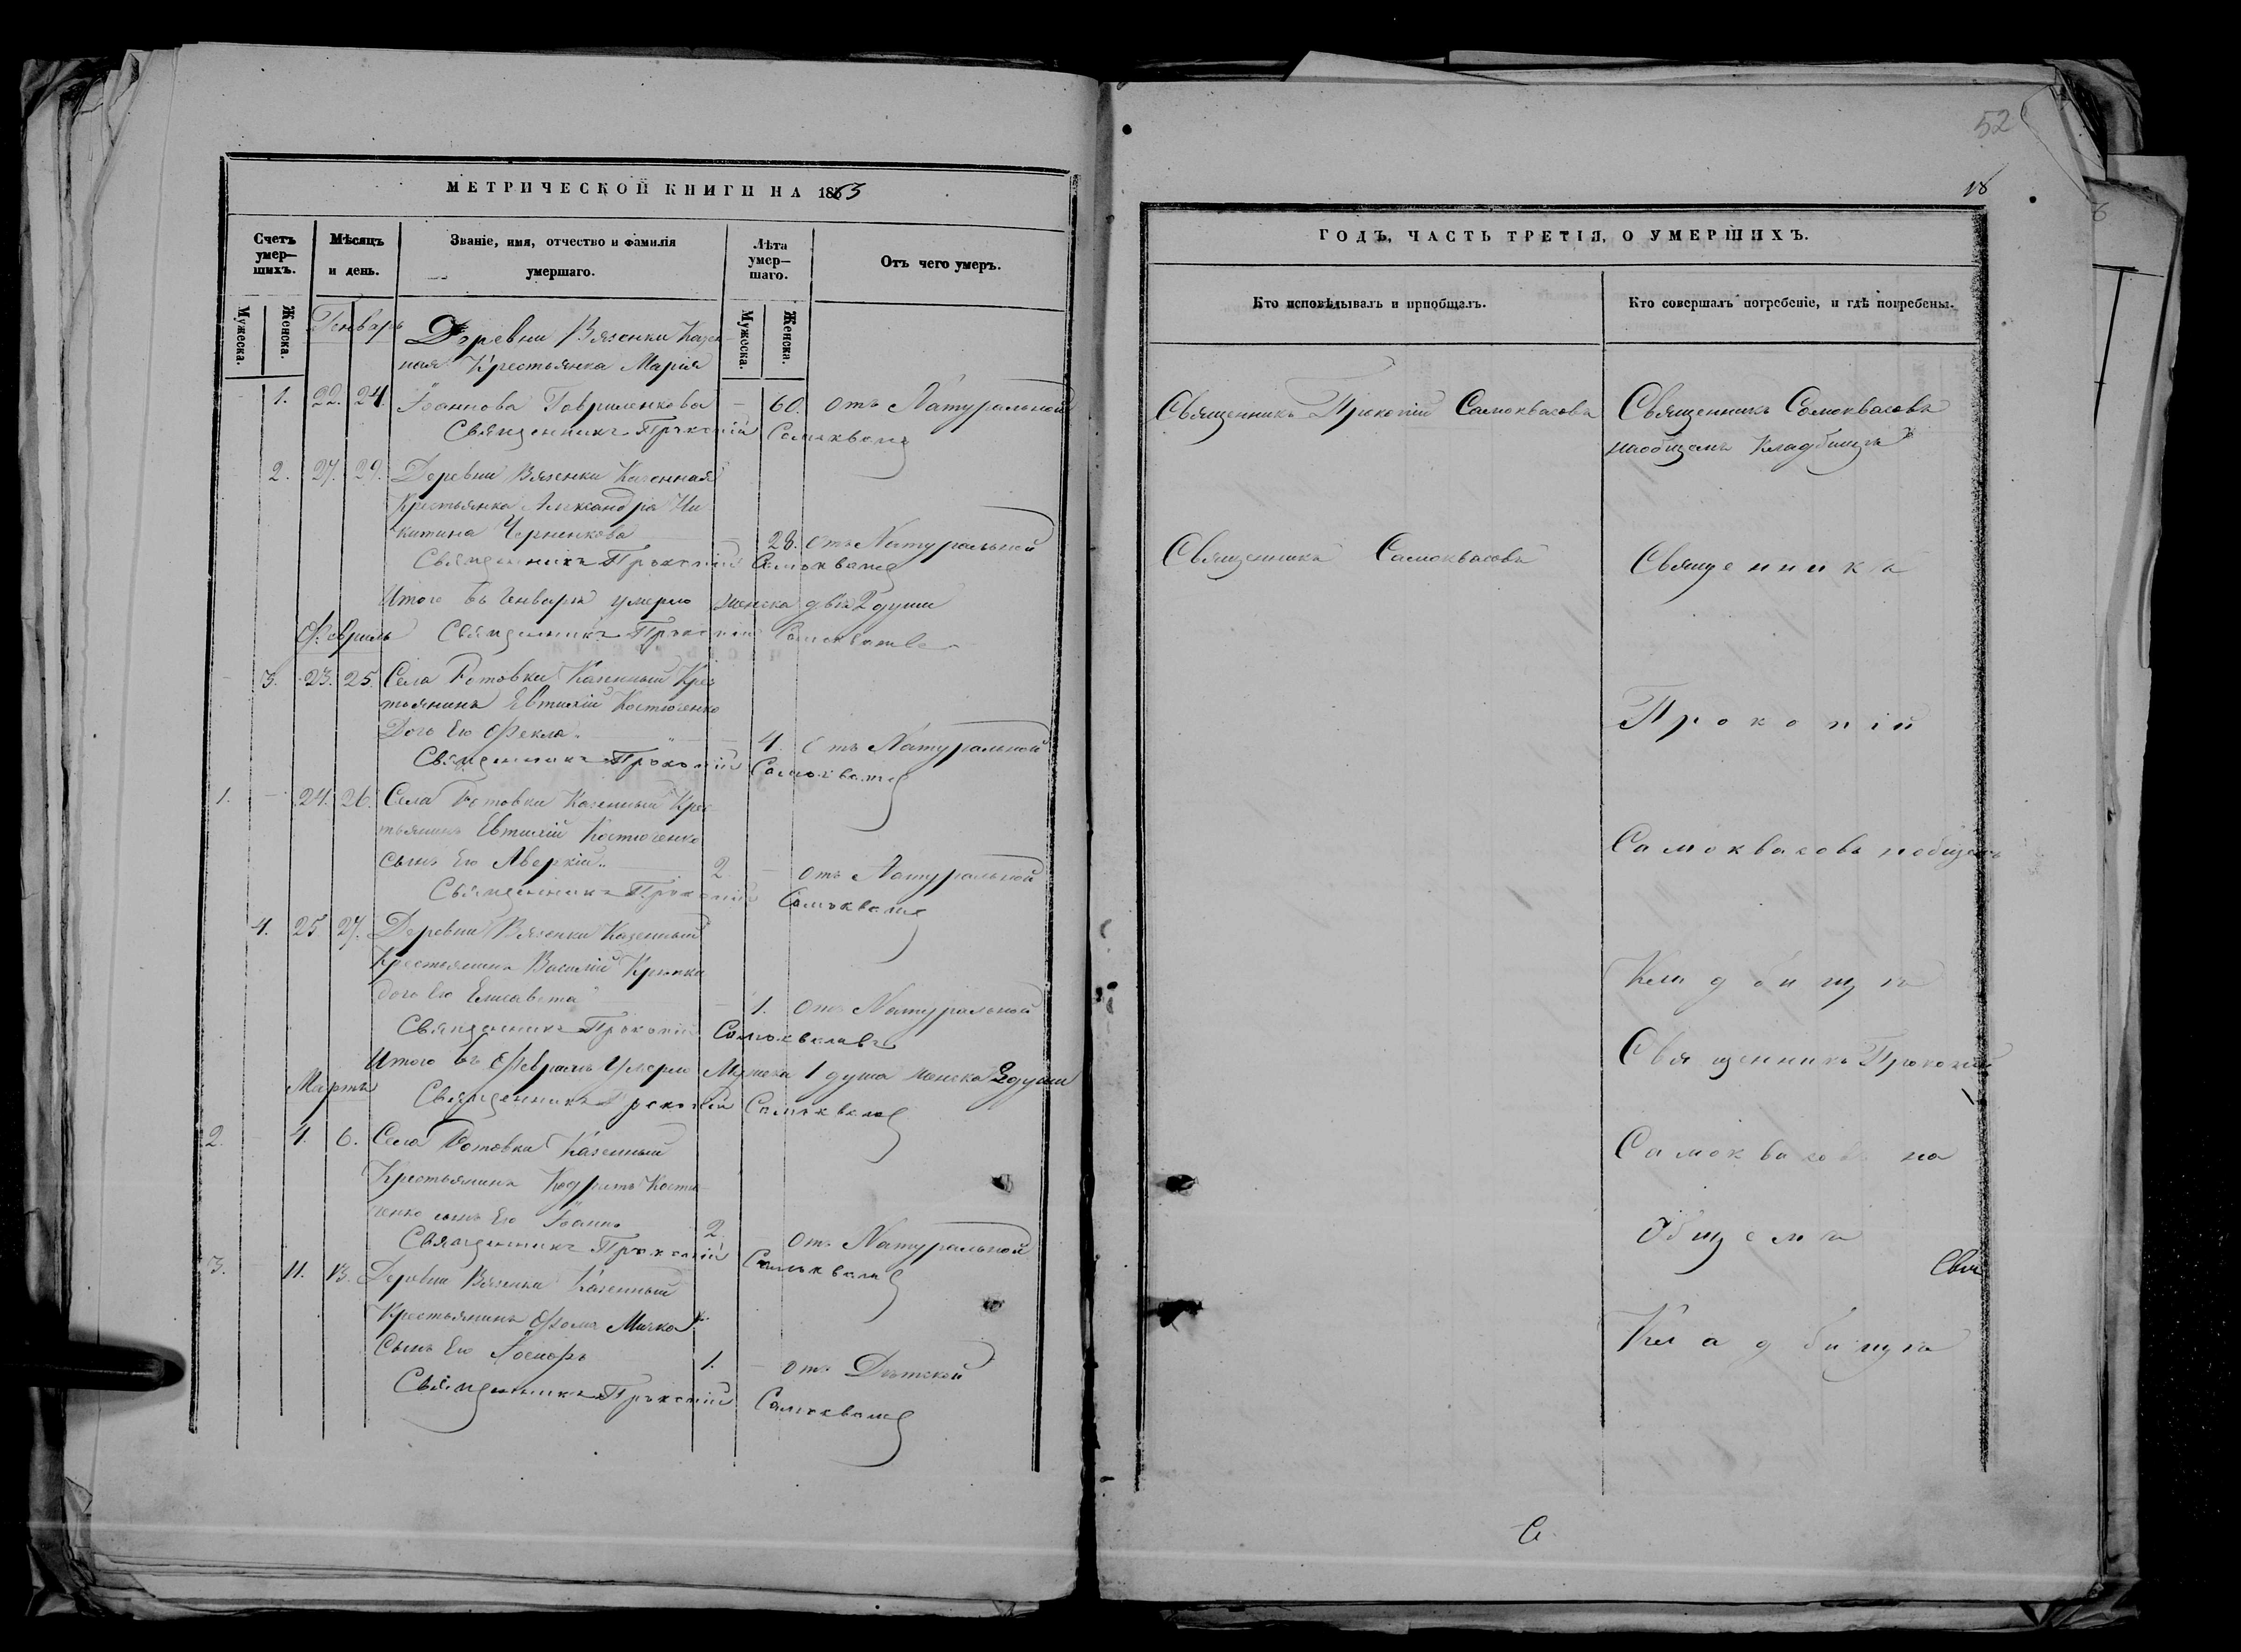 МЕТРИЧЕСКОЙ КНИГИ НА 1863
Счетъ умер—шихъ.
Мѣсяцъ и день.
Званіе, имя, отчество и фамилія умершаго.
Лѣта умер—шаго.
Отъ чего умеръ.
Мужеска.
Женска.
Мужеска.
Женска.
Генварь
Деревни Вязенки Казен-
ная Крестьянка Марія
1. 22. 24. Іоаннова Гавриленкова — 60. отъ Натуральной
Священникъ Прокопій Самоквасов
2. 27. 29. Деревни Вязенки Казенная
Крестьянка Александра Ни
китина Черненкова 28. отъ Натуральной
Священникъ Прокопій Самоквасов
Итого въ Генварѣ умерло женска двѣ 2 души
Февраль Священникъ Прокопій Самоквасов
3. 23. 25. Села Казенный Крес
тьянинъ Евтихій Костюченко
Дочь Его Фекла. 4. отъ Натуральной
Священникъ Прокопій Самоквасов
1. — 24. 26. Села Казенный Крес
тьянинъ Евтихій Костюченко
сынъ Его Аверкій. 2 — отъ Натуральной
Священникъ Прокопій Самоквасов
4. 25 27. Деревни Вязенки Казенный
Крестьянинъ Василій
дочь Его Елисавета 1. отъ Натуральной
Священникъ Прокопій Самоквасовъ
Итого въ Февралѣ Умерло Мужеска 1 душа женска 2 души
Мартъ Священникъ Прокопій Самоквасов
2. — 4. 6. Села Казенный
Крестьянинъ Кодратъ Костю
ченко сынъ Его Іоаннъ 2. отъ Натуральной
Священникъ Прокопій Самоквасов
3. — 11. 13. Деревни Вязенки Казенный
Крестьянинъ Фома
Сынъ Его 1. — отъ Дѣтской
Священникъ Прокопій Самоквасов
52
18
ГОДЪ, ЧАСТЬ ТРЕТІЯ, О УМЕРШИХЪ.
Кто исповѣдывалъ и пріобщалъ.
Кто совершалъ погребеніе, и гдѣ погребены.
Священникъ Прокопій Самоквасовъ
Священникъ Самоквасовъ
наобщемъ Кладбищѣ
Священникъ Самоквасовъ
Священникъ
Прокопій
Самоквасовъ
Кладбищѣ
Священникъ Прокопій
Самоквасовъ на
Общемъ
Свя
Кладбищѣ